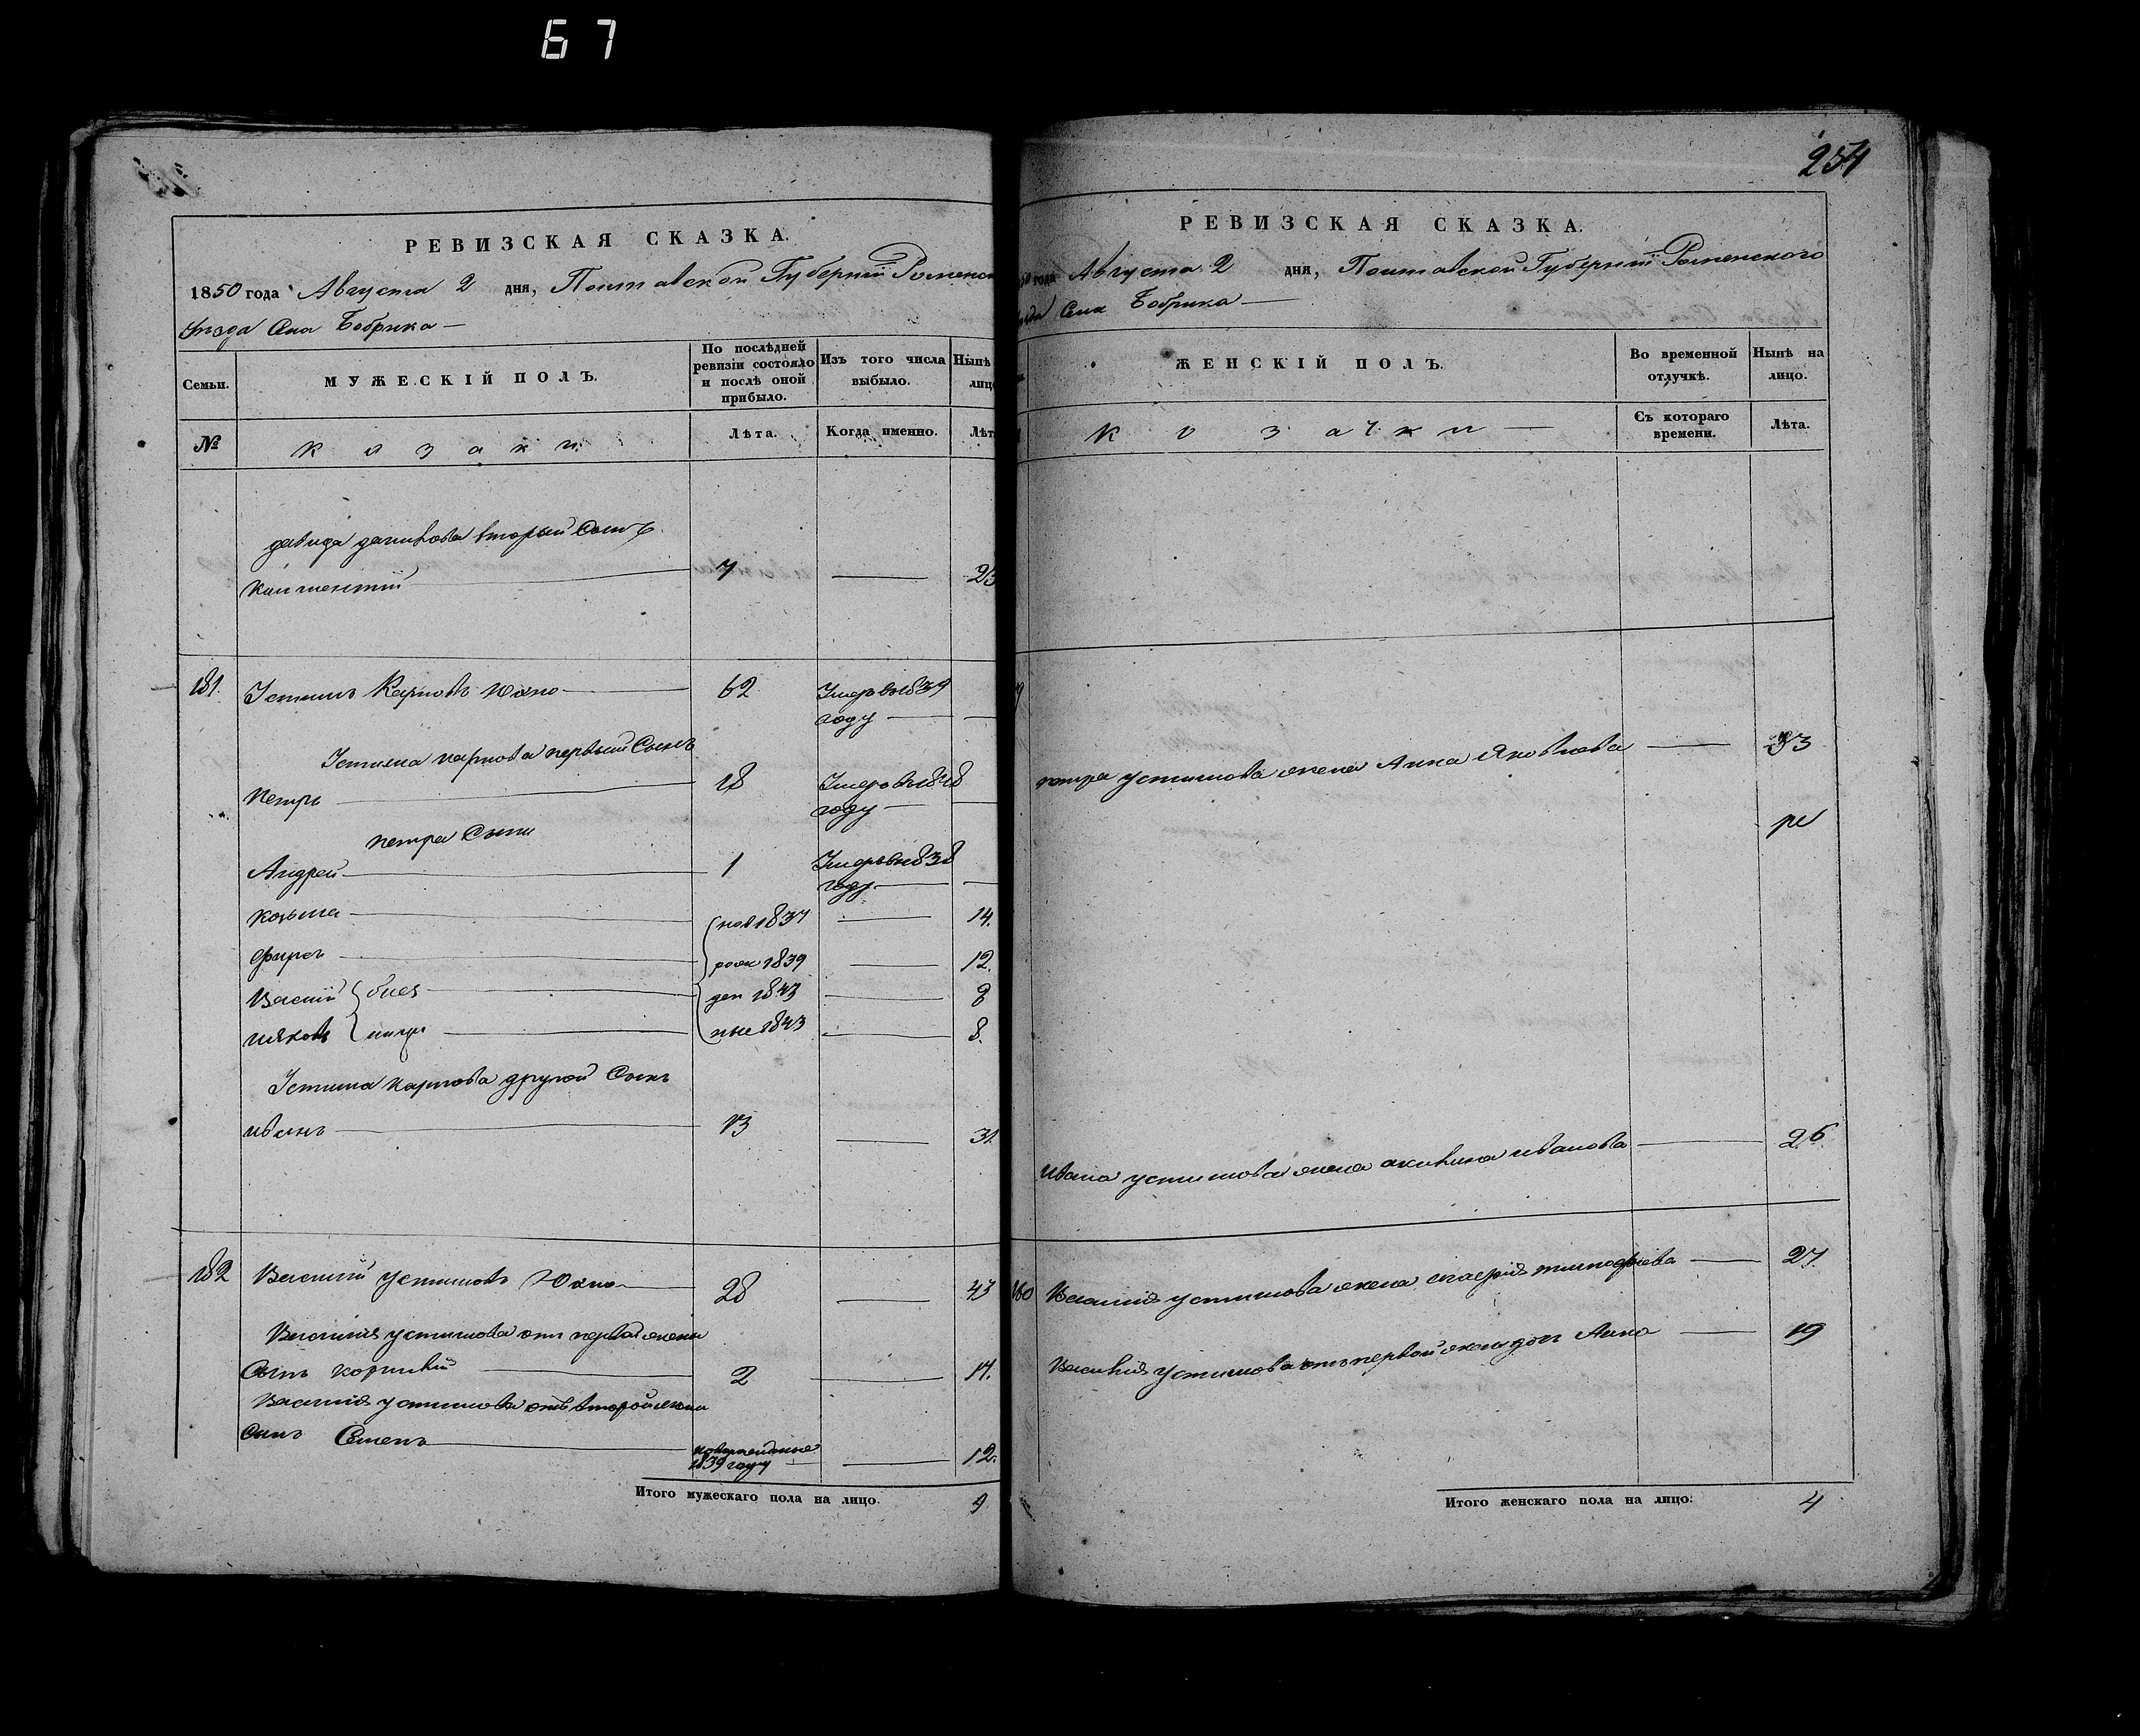 67
254
РЕВИЗСКАЯ СКАЗКА.
1850 года Августа 2 дня, Полтавской Губерніи Роменск
Уезда Села Бобрика —
Семьи.
МУЖЕСКІЙ ПОЛЪ.
По послѣдней ревизіи состояло и послѣ оной прибыло.
Изъ того числа выбыло.
Нынѣ лицо
№
козаки
Лѣта.
Когда именно.
Лѣт
давида данилова вторый Сынъ
Климентій — 7 — 23
181. Устимъ Карповъ Юхно — 62 Умеръ в 1839
году —
Устима карпова первый Сынъ
петръ — 18 Умеръ в 1848
году —
петра Сыны
Андрей — 1 Умеръ в 1838
году —
козьма — нов 1837 — 14.
фирсъ — рож 1839 — 12.
Василій близ — ден 1843 — 8
ияковъ нецы — ные 1843 — 8.
Устима карпова другой Сынъ
иванъ — 13 — 31.
182 Василий устимовъ Юхно — 28 — 43
Василия устимова от первой жены
Сынъ корнилій — 2 — 17.
Василия устимова отъ второй жены
Сынъ Семенъ — новорожденные
1839 году — 12.
Итого мужескаго пола на лицо. 9
РЕВИЗСКАЯ СКАЗКА.
50 года Августа 2 дня, Полтавской Губерніи Роменского
езда Села Бобрика —
ЖЕНСКІЙ ПОЛЪ.
Во временной отлучкѣ.
Нынѣ на лицо.
козачки —
Съ котораго времени.
Лѣта.
петра устимова жена Анна Яковлева — 33
ивана устимова жена акилина иванова — 26
180 Василия устимова жена гликерия тимофіева — 27
Василия устимова отъ первой жены дочь Анна — 19
Итого женскаго пола на лицо: 4